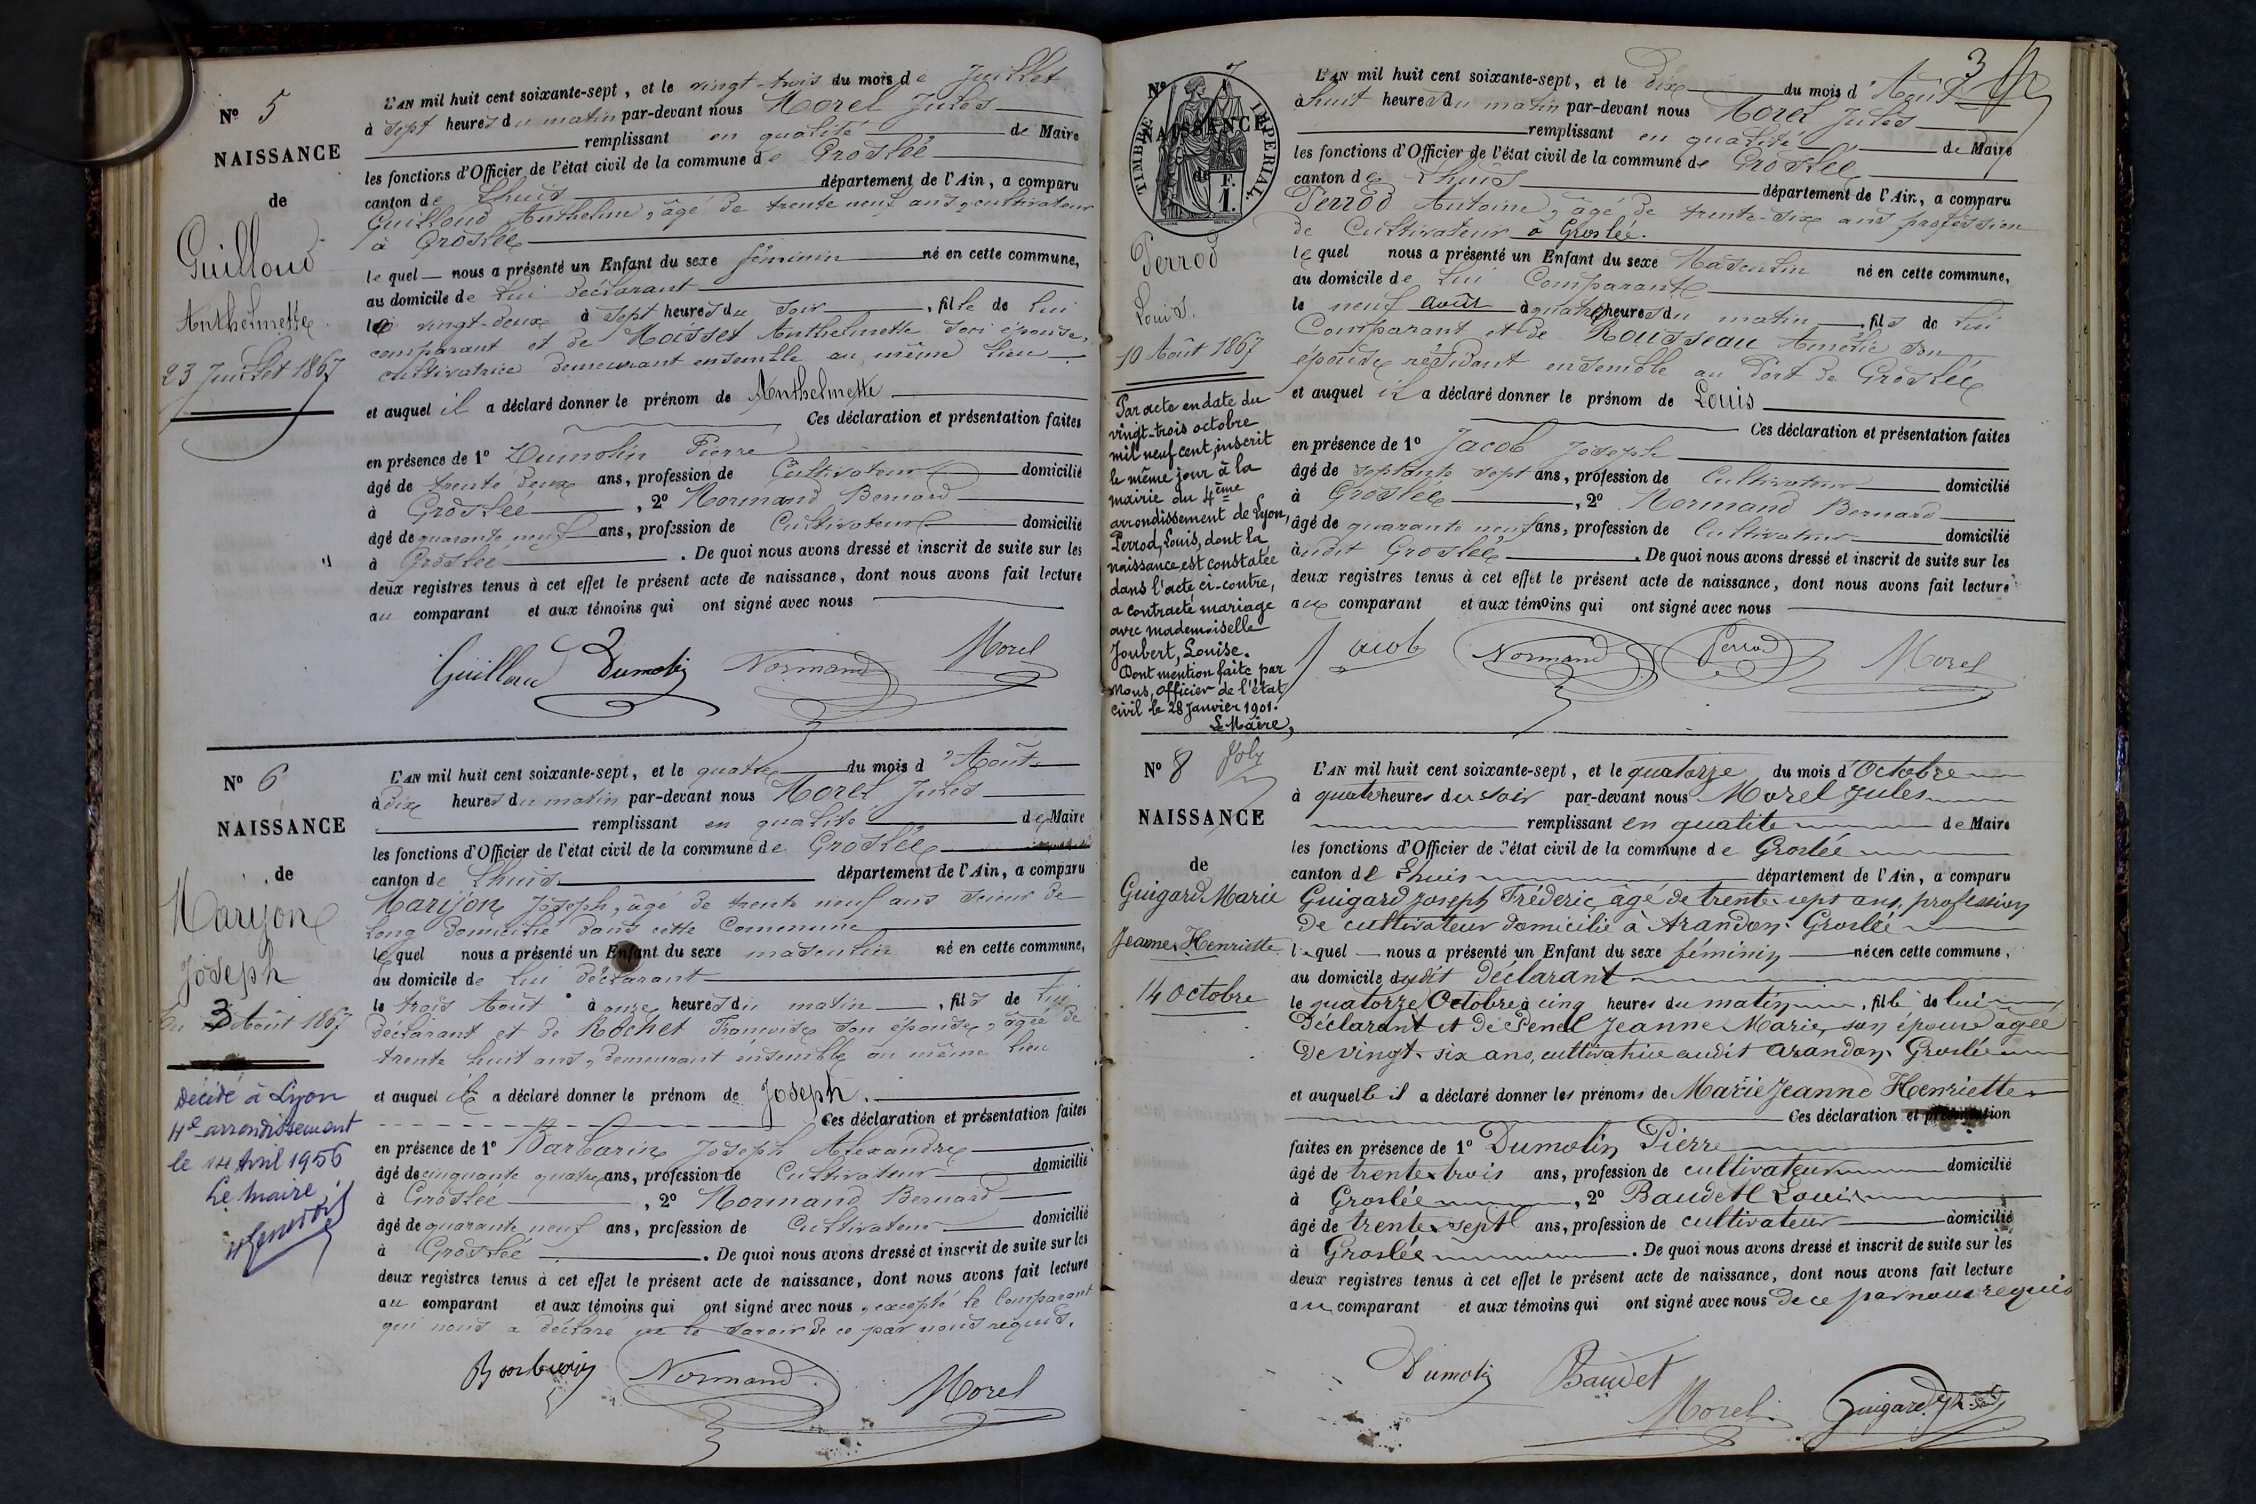 N° 5
NAISSANCE
de
Guilloud
Anthelmette
23 Juillet 1867
L'AN mil huit cent soixante-sept, et le vingt-trois du mois de Juillet
à sept heures du matin par-devant nous Morel Jules
remplissant en qualité de Maire
les fonctions d'Officier de l'état civil de la commune de Groslée
canton de Lhuis département de l'Ain, a comparu
Guilloud Anthelme, âgé de trente neuf ans, cultivateur
à Groslée
lequel nous a présenté un Enfant du sexe féminin né en cette commune,
au domicile de lui déclarant
le vingt-deux à sept heures du soir, fille de lui
comparant et de Moisset Anthelmette son épouse,
cultivatrice demeurant ensemble au même lieu
et auquel il a déclaré donner le prénom de Anthelmette
Ces déclaration et présentation faites
en présence de 1° Dumolin Pierre
âgé de trente deux ans, profession de Cultivateur domicilié
à Groslée, 2° Normand Bernard
âgé de quarante neuf ans, profession de Cultivateur domicilié
à Groslée. De quoi nous avons dressé et inscrit de suite sur les
deux registres tenus à cet effet le présent acte de naissance, dont nous avons fait lecture
au comparant et aux témoins qui ont signé avec nous
Guilloud Dumolin Normand Morel
N° 6
NAISSANCE
de
Marijon
Joseph
du 3 Août 1867
Décédé à Lyon
4e arrondissement
le 14 Avril 1956
Le maire,
L'AN mil huit cent soixante-sept, et le quatre du mois d'Août
à dix heures du matin par-devant nous Morel Jules
remplissant en qualité de Maire
les fonctions d'Officier de l'état civil de la commune de Groslée
canton de Lhuis département de l'Ain, a comparu
Marijon Joseph, âgé de trente neuf ans scieur de
long domicilié dans cette Commune
lequel nous a présenté un Enfant du sexe masculin né en cette commune,
au domicile de lui déclarant
le trois Août à onze heures du matin, fils de lui
déclarant et de Rochet Françoise son épouse, âgée de
trente huit ans, demeurant ensemble au même lieu
et auquel il a déclaré donner le prénom de Joseph.
Ces déclaration et présentation faites
en présence de 1° Barbarin Joseph Alexandre
âgé de cinquante quatre ans, profession de Cultivateur domicilié
à Groslée, 2° Normand Bernard
âgé de quarante neuf ans, profession de Cultivateur domicilié
à Groslée. De quoi nous avons dressé et inscrit de suite sur les
deux registres tenus à cet effet le présent acte de naissance, dont nous avons fait lecture
au comparant et aux témoins qui ont signé avec nous, excepté le Comparant
qui nous a déclaré ne le savoir de ce par nous requis.
Barbarin Normand Morel
3
N° 7
NAISSANCE
de
TIMBRE IMPERIAL
F. 1.
Perrod
Louis.
10 Août 1867
Par acte en date du
vingt-trois octobre
mil neuf cent, inscrit
le même jour à la
mairie du 4ème
arrondissement de Lyon,
Perrod, Louis, dont la
naissance est constatée
dans l'acte ci-contre,
a contracté mariage
avec mademoiselle
Joubert, Louise.
Dont mention faite par
Nous, officier de l'état
civil le 28 Janvier 1901.
Le Maire,
Joly
L'AN mil huit cent soixante-sept, et le dix du mois d'Août
à huit heures du matin par-devant nous Morel Jules
remplissant en qualité de Maire
les fonctions d'Officier de l'état civil de la commune de Groslée
canton de Lhuis département de l'Ain, a comparu
Perrod Antoine, âgé de trente-six ans profession
de Cultivateur à Groslée.
lequel nous a présenté un Enfant du sexe Masculin né en cette commune,
au domicile de lui Comparant
le neuf Août à quatre heures du matin, fils de lui
Comparant et de Rousseau Amélie son
épouse résidant ensemble au Port de Groslée
et auquel il a déclaré donner le prénom de Louis
Ces déclaration et présentation faites
en présence de 1° Jacob Joseph
âgé de septante sept ans, profession de Cultivateur domicilié
à Groslée, 2° Normand Bernard
âgé de quarante neuf ans, profession de Cultivateur domicilié
audit Groslée. De quoi nous avons dressé et inscrit de suite sur les
deux registres tenus à cet effet le présent acte de naissance, dont nous avons fait lecture
au comparant et aux témoins qui ont signé avec nous
Jacob Normand Perrod Morel
N° 8
NAISSANCE
de
Guigard Marie
Jeanne Henriette
14 Octobre
L'AN mil huit cent soixante-sept, et le quatorze du mois d'Octobre
à quatre heures du soir par-devant nous Morel Jules
remplissant en qualité de Maire
les fonctions d'Officier de l'état civil de la commune de Groslée
canton de Lhuis département de l'Ain, a comparu
Guigard Joseph Fréderic, âgé de trente sept ans, profession
de cultivateur domicilié à Arandon Groslée
lequel nous a présenté un Enfant du sexe féminin née en cette commune,
au domicile dudit Déclarant
le quatorze Octobre à cinq heures du matin, fille de lui
Déclarant et de Penel Jeanne Marie, son épouse agée
de vingt-six ans, cultivatrice audit Arandon, Groslée
et auquelle il a déclaré donner les prénoms de Marie Jeanne Henriette
Ces déclaration et présentation
faites en présence de 1° Dumolin Pierre
âgé de trente trois ans, profession de cultivateur domicilié
à Groslée, 2° Baudet Louis
âgé de trente sept ans, profession de cultivateur domicilié
à Groslée. De quoi nous avons dressé et inscrit de suite sur les
deux registres tenus à cet effet le présent acte de naissance, dont nous avons fait lecture
au comparant et aux témoins qui ont signé avec nous de ce par nous requis
Dumolin Baudet Morel Guigard